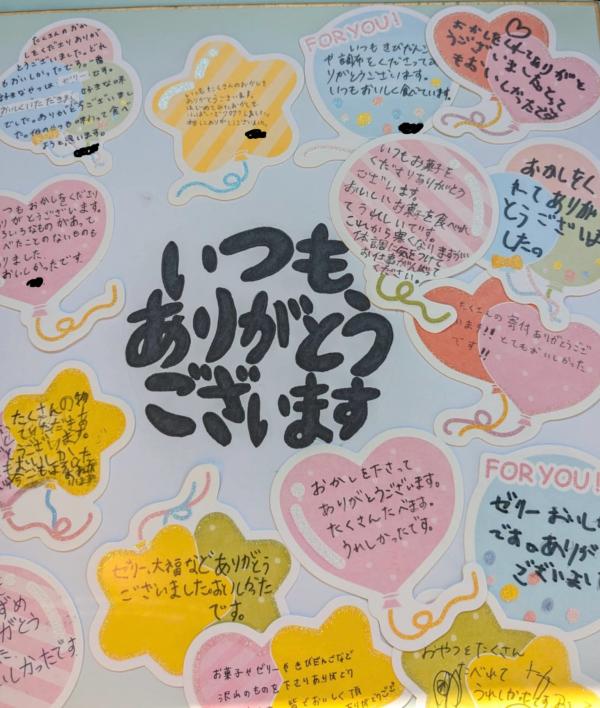 いつも、
ありがとう
ございます
たくさんのおか
しをくださりありが
とうございます。どれ
もおいしかったです。一番
好きなやつは、ゼリーです。
おいしくいただき
でした。ありがとうございまし
いつもたくさんのおかしを
ありがとうございます。
FOR YOU!
いつもきびだんご
や調布をくださってあ
りがとうございます。
いつもおいしく食べています。
おかしをくれてありがと
うございました。とって
もおいしかったです
いつもお菓子を
くださりありがとう
ございます。
おいしいお菓子を食べれ
てうれしいです。
これから寒くなりますが
体調に気をつけて
お仕事がんばって
ください!
おかしをく
れてありが
とうござい
した。
いつもおかしをくださり
りがとうございます。
ろいろなものがあって
べたことのないものも
りました
おいしかったです
たくさんの寄付ありがとうござ
います!!とてもおいしかった
です!!
たくさんの物
おかしを下さって
ありがとうございます。
たくさんたべます。
うれしかったです。
FOR YOU!
ゼリーおいし
です。ありが
ございま
ゼリー、大福などありがとう
ございました。おいしかった
です。
ずめ
がとう
た、
しかったです
お菓子やゼリーやきびだんごなど
沢山のものを下さりありがとう
皆でおいしく頂
おやつをたくさん
たべれて
うれしかったです